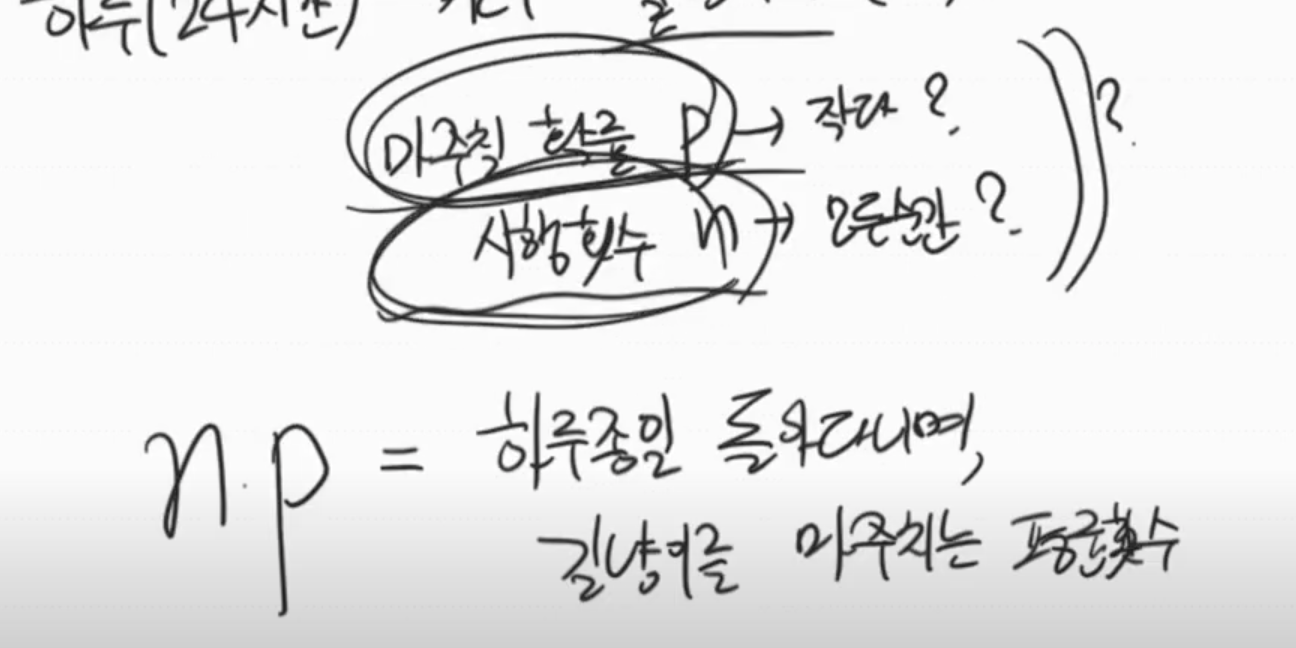 하루(24시간)
마주칠 확률 p → 작다?
시행횟수 n → 모든순간?
?
n·p = 하루종일 돌아다니며,
길냥이를 마주치는 평균횟수